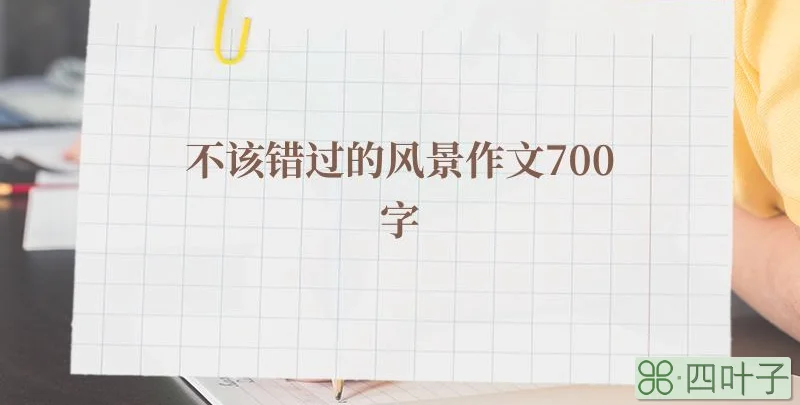 不该错过的风景作文700
字
四叶子